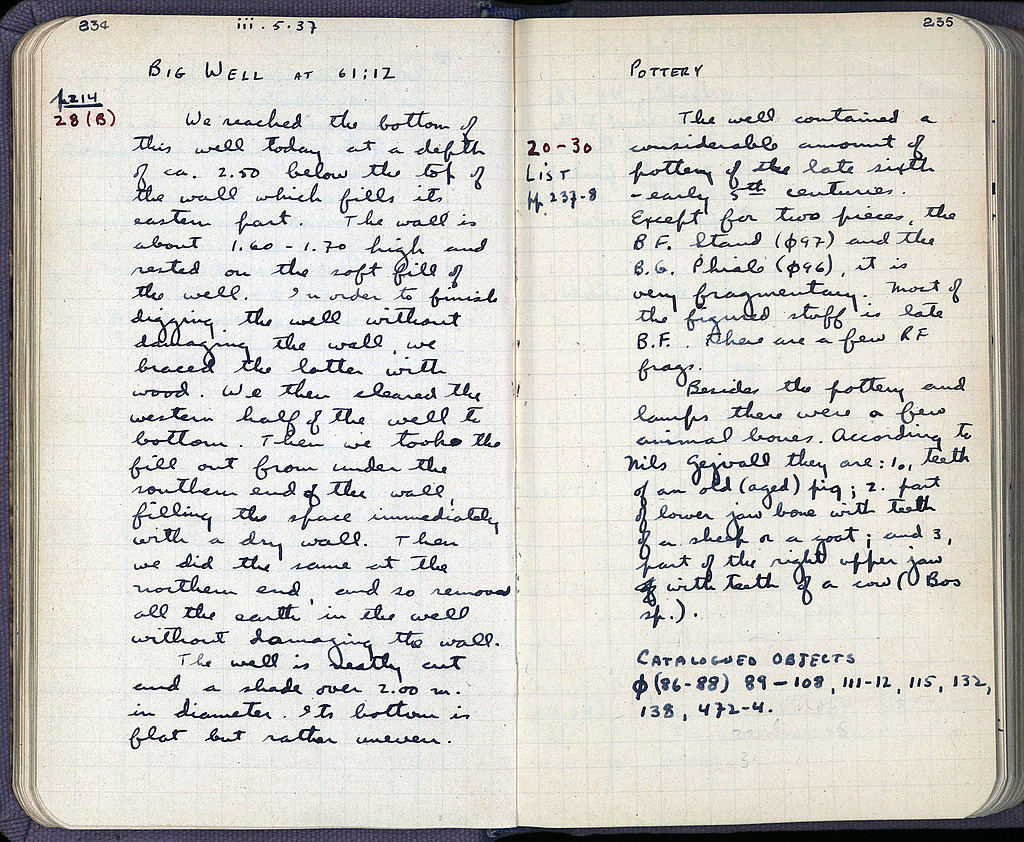 234
iii.5.37
BIG WELL AT 61:12
p214
28(B)
We reached the bottom of
this well today at a depth
of ca. 2.50 below the top of
the wall which fills its
eastern part. The wall is
about 1.60 - 1.70 high and
rested on the soft fill of
the well. In order to finish
digging the well without
damaging the wall, we
braced the latter with
wood. We then cleared the
western half of the well to
bottom. Then we took the
fill out from under the
southern end of the wall,
filling the space immediately
with a dry wall. Then
we did the same at the
northern end, and so removed
all the earth in the well
without damaging the wall.
The well is neatly cut
and a shade over 2.00 m.
in diameter. Its bottom is
flat but rather uneven.
235
POTTERY
20-30
LIST
pp. 237-8
The well contained a
considerable amount of
pottery of the late sixth
- early 5th centuries.
Except for two pieces, the
B.F. Stand (φ97) and the
B.G. Phiale (φ96), it is
very fragmentary. Most of
the figured stuff is late
B.F. There are a few RF
frags.
Besides the pottery and
lamps there were a few
animal bones. According to
Nils Gejvall they are: 1., teeth
of an old (aged) pig; 2. part
of lower jaw bone with teeth
of a sheep or a goat; and 3,
part of the right upper jaw
with teeth of a cow (Bos
sp.).
CATALOGUED OBJECTS
φ(86-88) 89-108, 111-12, 115, 132,
138, 472-4.